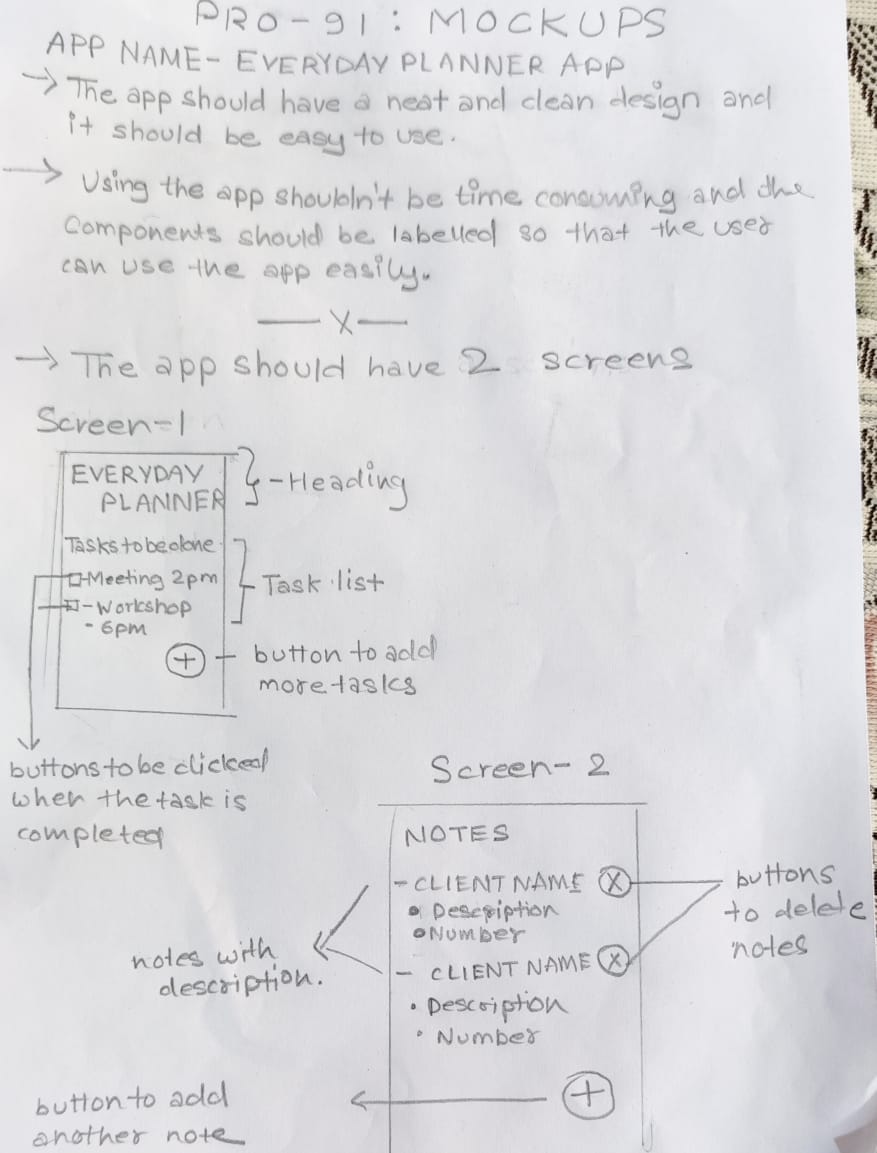 PRO-91: MOCKUPS
APP NAME- EVERYDAY PLANNER APP
→ The app should have a neat and clean design and
it should be easy to use.
→ Using the app shouldn't be time consuming and the
Components should be labelled so that the user
can use the app easily.
— X —
→ The app should have 2 screens
Screen-1
EVERYDAY
PLANNER
- Heading
Tasks to be done
- Meeting 2pm
- Workshop
- 6pm
Task list
+
button to add
more tasks
buttons to be clicked
when the task is
completed
Screen- 2
NOTES
- CLIENT NAME X
• Description
• Number
- CLIENT NAME X
• Description
• Number
buttons
to delete
notes
notes with
description.
+
button to add
another note